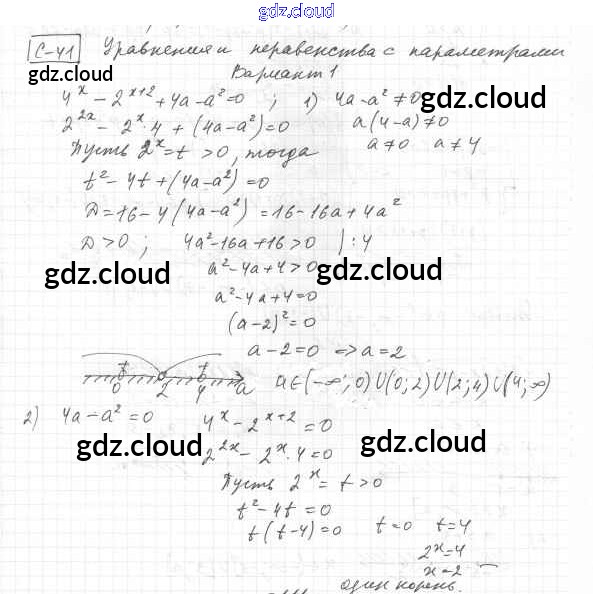 gdz.cloud
С-41 Уравнения и неравенства с параметрами
Вариант 1
gdz.cloud gdz.cloud
4^x - 2^{x+2} + 4a - a² = 0 ; 1) 4a - a² ≠ 0
2^{2x} - 2^x · 4 + (4a - a²) = 0 a(4 - a) ≠ 0
Пусть 2^x = t > 0, тогда a ≠ 0 a ≠ 4
t² - 4t + (4a - a²) = 0
D = 16 - 4(4a - a²) = 16 - 16a + 4a²
D > 0 ; 4a² - 16a + 16 > 0 | : 4
gdz.cloud gdz.cloud
a² - 4a + 4 > 0
a² - 4a + 4 = 0
(a - 2)² = 0
a - 2 = 0 => a = 2
+ +
0 2 4 a a ∈ (-∞; 0) U (0; 2) U (2; 4) U (4; ∞)
2) 4a - a² = 0 4^x - 2^{x+2} = 0
gdz.cloud gdz.cloud gdz.cloud
2^{2x} - 2^x · 4 = 0
Пусть 2^x = t > 0
t² - 4t = 0
t(t - 4) = 0 t = 0 t = 4
2^x = 4
x = 2
один корень.